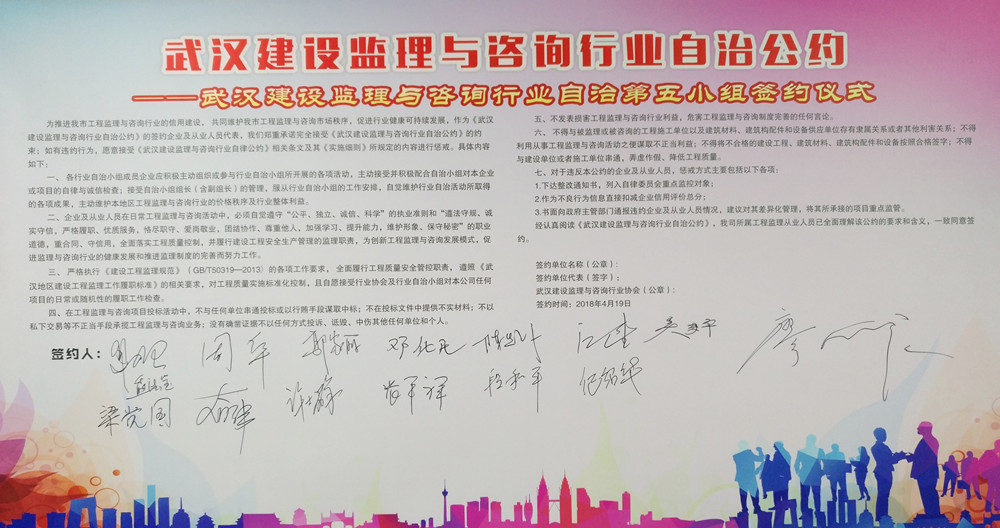 武汉建设监理与咨询行业自治公约
——武汉建设监理与咨询行业自治第五小组签约仪式
为推进我市工程监理与咨询行业的信用建设，共同维护我市工程监理与咨询市场秩序，促进行业健康可持续发展，作为《武汉
建设监理与咨询行业自治公约》的签约企业及从业人员代表，我们郑重承诺完全接受《武汉建设监理与咨询行业自治公约》的约
束；如有违行为，愿意接受《武汉建设监理与咨询行业自律公约》相关条文及其《实施细则》所规定的内容进行惩戒。具体内容
如下：
一、各行业自治小组成员企业应积极主动组织或参与行业自治小组所开展的各项活动，主动接受并积极配合自治小组对本企业
或项目的自律与诚信检查；接受自治小组组长（含副组长）的管理，服从行业自治小组的工作安排，自觉维护行业自治活动所取得
的各项成果，主动维护本地区工程监理与咨询行业的价格秩序及行业整体利益。
二、企业及从业人员在日常工程监理与咨询活动中，必须自觉遵守“公平、独立、诚信、科学”的执业准则和“遵法守规、诚
实守信，严格履职、优质服务，恪尽职守、爱岗敬业，团结协作、尊重他人，加强学习、提升能力，维护形象、保守秘密”的职业
道德，重合同、守信用，全面落实工程质量控制，并履行建设工程安全生产管理的监理职责，为创新工程监理与咨询发展模式，促
进监理与咨询行业的健康发展和推进监理制度的完善而努力工作。
三、严格执行《建设工程监理规范》（GB/T50319—2013）的各项工作要求，全面履行工程质量安全管控职责，遵照《武
汉地区建设工程监理工作履职标准》的相关要求，对工程质量实施标准化控制，且自愿接受行业协会及行业自治小组对本公司任何
项目的日常或随机性的履职工作检查。
四、在工程监理与咨询项目投标活动中，不与任何单位串通投标或以行贿手段谋取中标；不在投标文件中提供不实材料；不以
私下交易等不正当手段承揽工程监理与咨询业务；没有确凿证据不以任何方式投诉、诋毁、中伤其他任何单位和个人。
五、不发表损害工程监理与咨询行业利益，危害工程监理与咨询制度完善的任何言论。
六、不得与被监理或被咨询的工程施工单位以及建筑材料、建筑构配件和设备供应单位存有隶属关系或者其他利害关系；不得
利用从事工程监理与咨询活动之便谋取不正当利益；不得将不合格的建设工程、建筑材料、建筑构配件和设备按照合格签字；不得
与建设单位或者施工单位串通，弄虚作假、降低工程质量。
七、对于违反本公约的企业及从业人员，惩戒方式主要包括以下各项：
1.下达整改通知书，列入自律委员会重点监控对象；
2.作为不良行为信息直接扣减企业信用评价总分；
3.书面向政府主管部门通报违约企业及从业人员情况，建议对其差异化管理，将其所承揽的项目重点监管。
经认真阅读《武汉建设监理与咨询行业自治公约》，我司所属工程监理从业人员已全面理解该公约的要求和含义，一致同意签
约。
签约单位名称（公章）：
签约单位代表（签字）：
武汉建设监理与咨询行业协会（公章）：
签约时间：2018年4月19日
签约人：
周军
梁党国